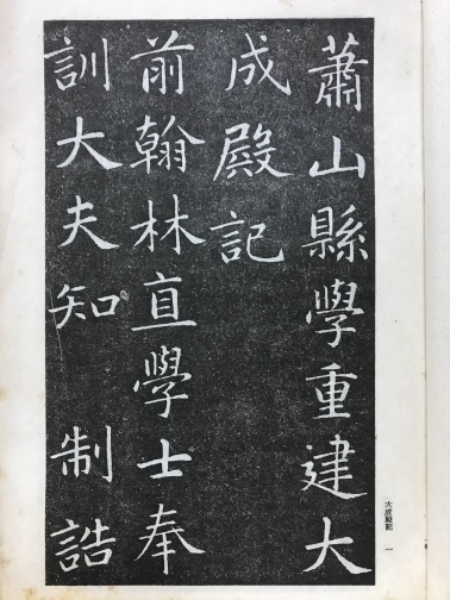 蕭山縣學重建大
成殿記
前翰林直學士奉
訓大夫知　制誥
大成殿記　一